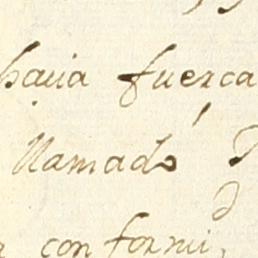 hauia fuerca
llamado
con formi,